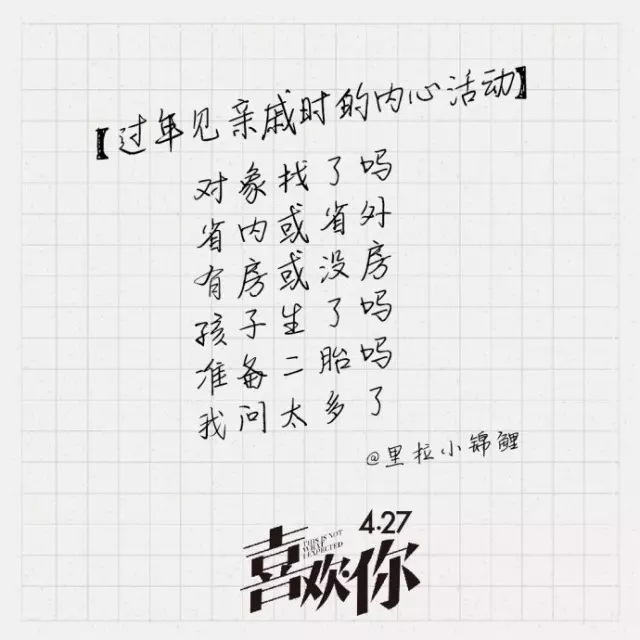 【过年见亲戚时的内心活动】
对象找了吗
省内或省外
有房或没房
孩子生了吗
准备二胎吗
我问太多了
@里拉小锦鲤
4.27
THIS IS NOT
WHAT
I EXPECTED
喜欢·你